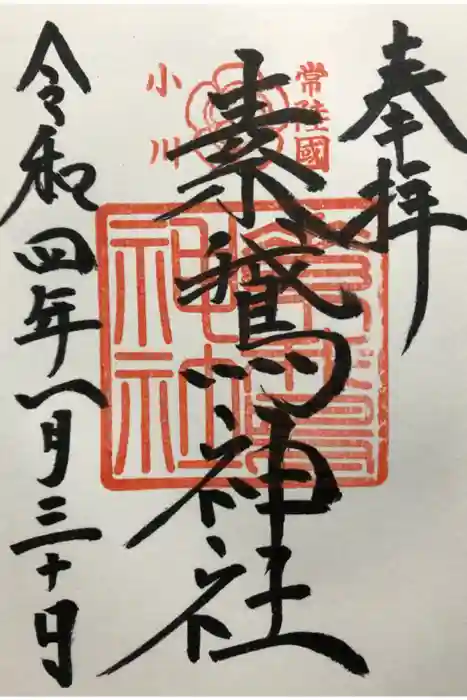 奉拝
常陸國
小川
素鵞神社
素鵞
神社
令和四年一月三十日